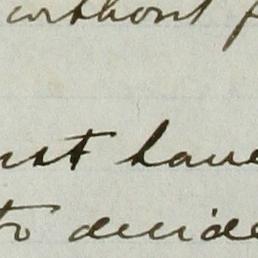 without f
ust have
to decide